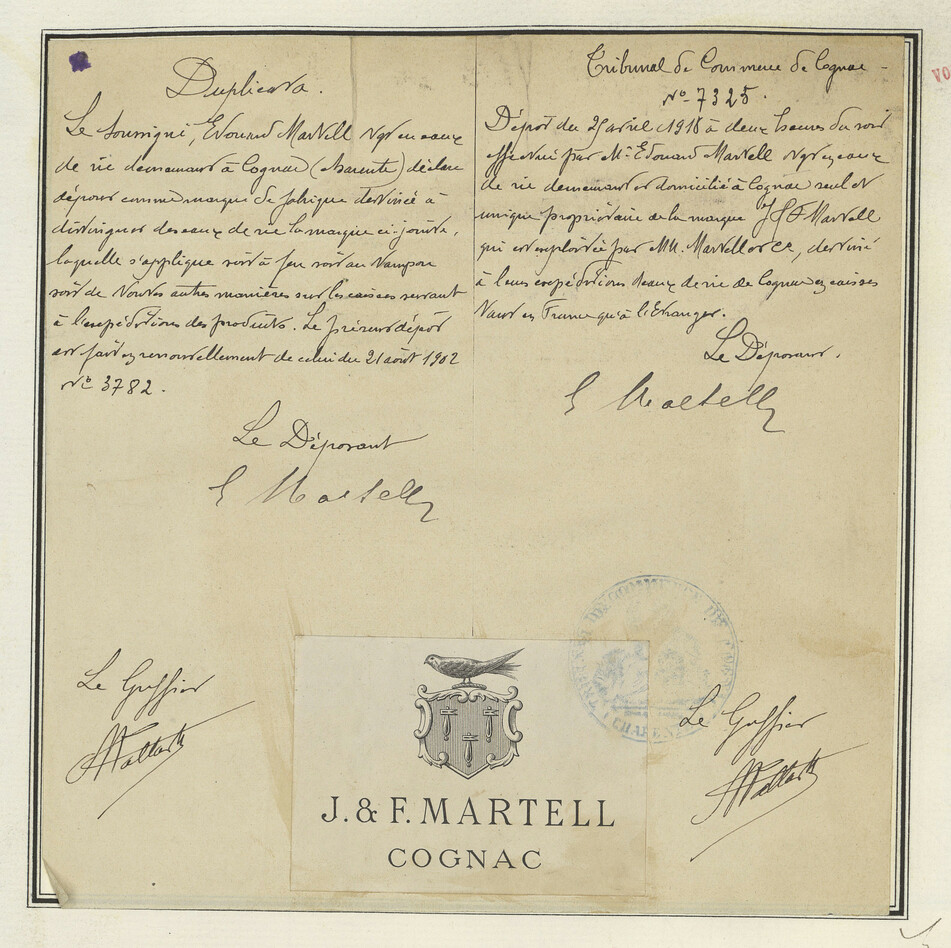 Duplicata.
Le soussigné, Edouard Martell Ngt en eaux
de vie demeurant à Cognac (Charente) déclare
déposer comme marque de fabrique destinée à
distinguer des eaux de vie la marque ci-jointe,
laquelle s'applique soit à feu soit au tampon
soit de toutes autres manières sur les caisses servant
à l'expéditions des produits. Le présent dépôt
est fait en renouvellement de celui du 21 août 1902
No 3782.
Le Déposant
E Martell
Le Greffier
Tribunal de Commerce de Cognac -
No 7325.
Dépôt du avril à deux heures du soir
effectué par Mr. Edouard Martell Ngt en eaux
de vie demeurant et domicilié à Cognac seul et
unique propriétaire de la marque J & F Martell
qui est exploitée par MM. Martell et Cie, destinée
à leurs expéditions d'eaux de vie de Cognac en caisses
tant en France qu'à l'Etranger.
Le Déposant.
E Martell
TRIBUNAL DE COMMERCE DE
Le Greffier
J. & F. MARTELL
COGNAC
VO